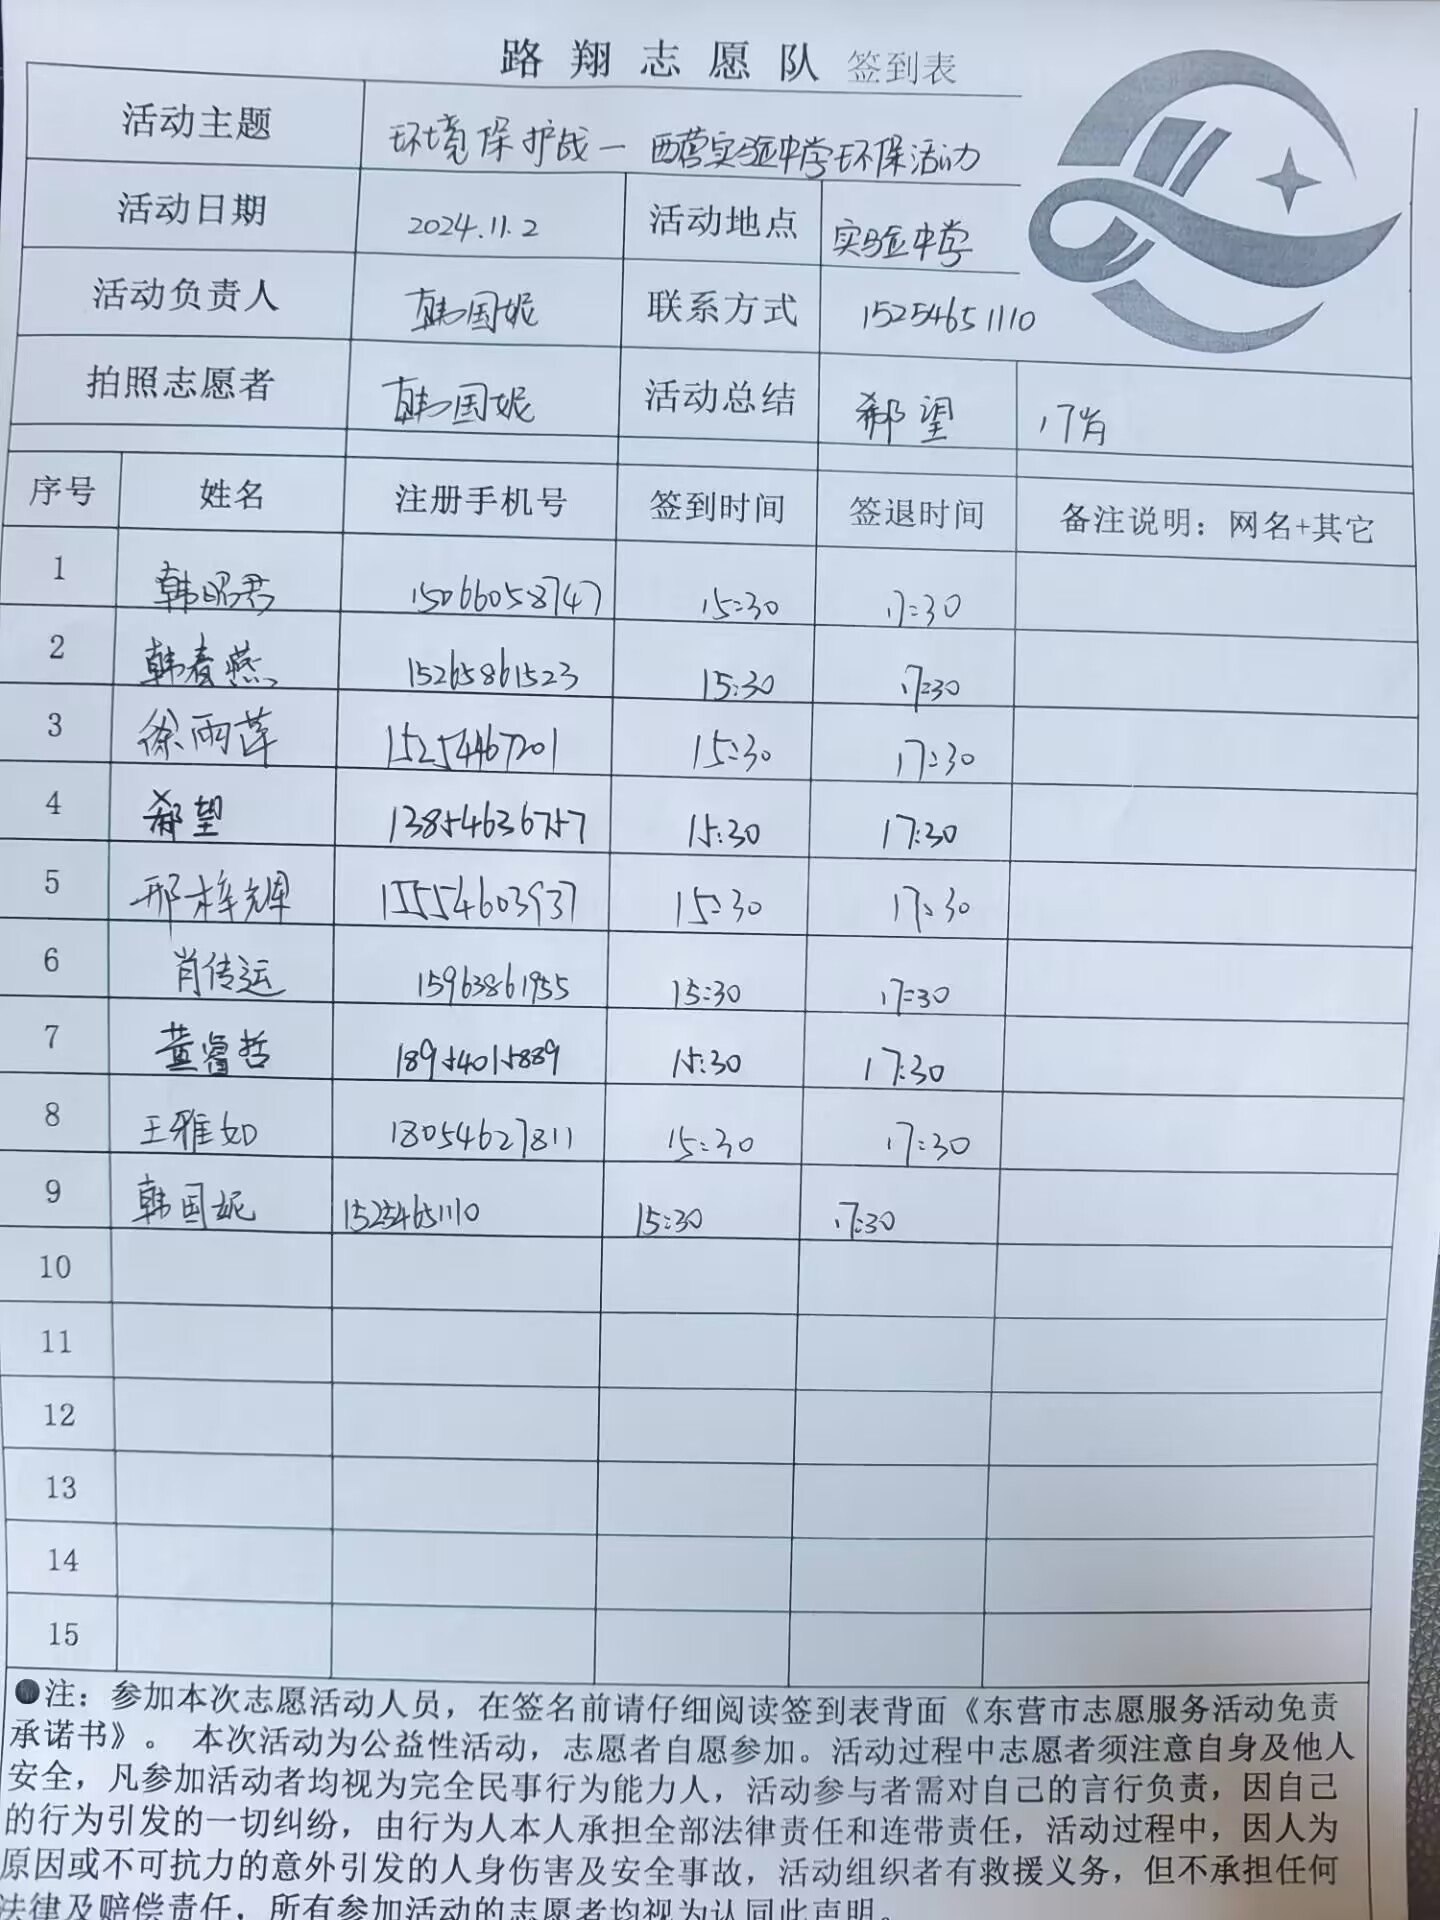 路翔志愿队 签到表
活动主题 环境保护战一 西营实验中学环保活动
活动日期 2024.11.2 活动地点 实验中学
活动负责人 韩国妮 联系方式 15254651110
拍照志愿者 韩国妮 活动总结 希望 17岁
序号 姓名 注册手机号 签到时间 签退时间 备注说明：网名+其它
1 韩昭君 15066058747 15:30 17:30
2 韩春燕 15265861523 15:30 17:30
3 徐雨莲 15254467201 15:30 17:30
4 希望 13854636757 15:30 17:30
5 邢梓耀 15554603937 15:30 17:30
6 肖传运 15963861955 15:30 17:30
7 黄睿哲 18954015889 15:30 17:30
8 王雅如 18054627811 15:30 17:30
9 韩国妮 15254651110 15:30 17:30
10
11
12
13
14
15
●注：参加本次志愿活动人员，在签名前请仔细阅读签到表背面《东营市志愿服务活动免责
承诺书》。 本次活动为公益性活动，志愿者自愿参加。活动过程中志愿者须注意自身及他人
安全，凡参加活动者均视为完全民事行为能力人，活动参与者需对自己的言行负责，因自己
的行为引发的一切纠纷，由行为人本人承担全部法律责任和连带责任，活动过程中，因人为
原因或不可抗力的意外引发的人身伤害及安全事故，活动组织者有救援义务，但不承担任何
法律及赔偿责任，所有参加活动的志愿者均视为认同此声明。